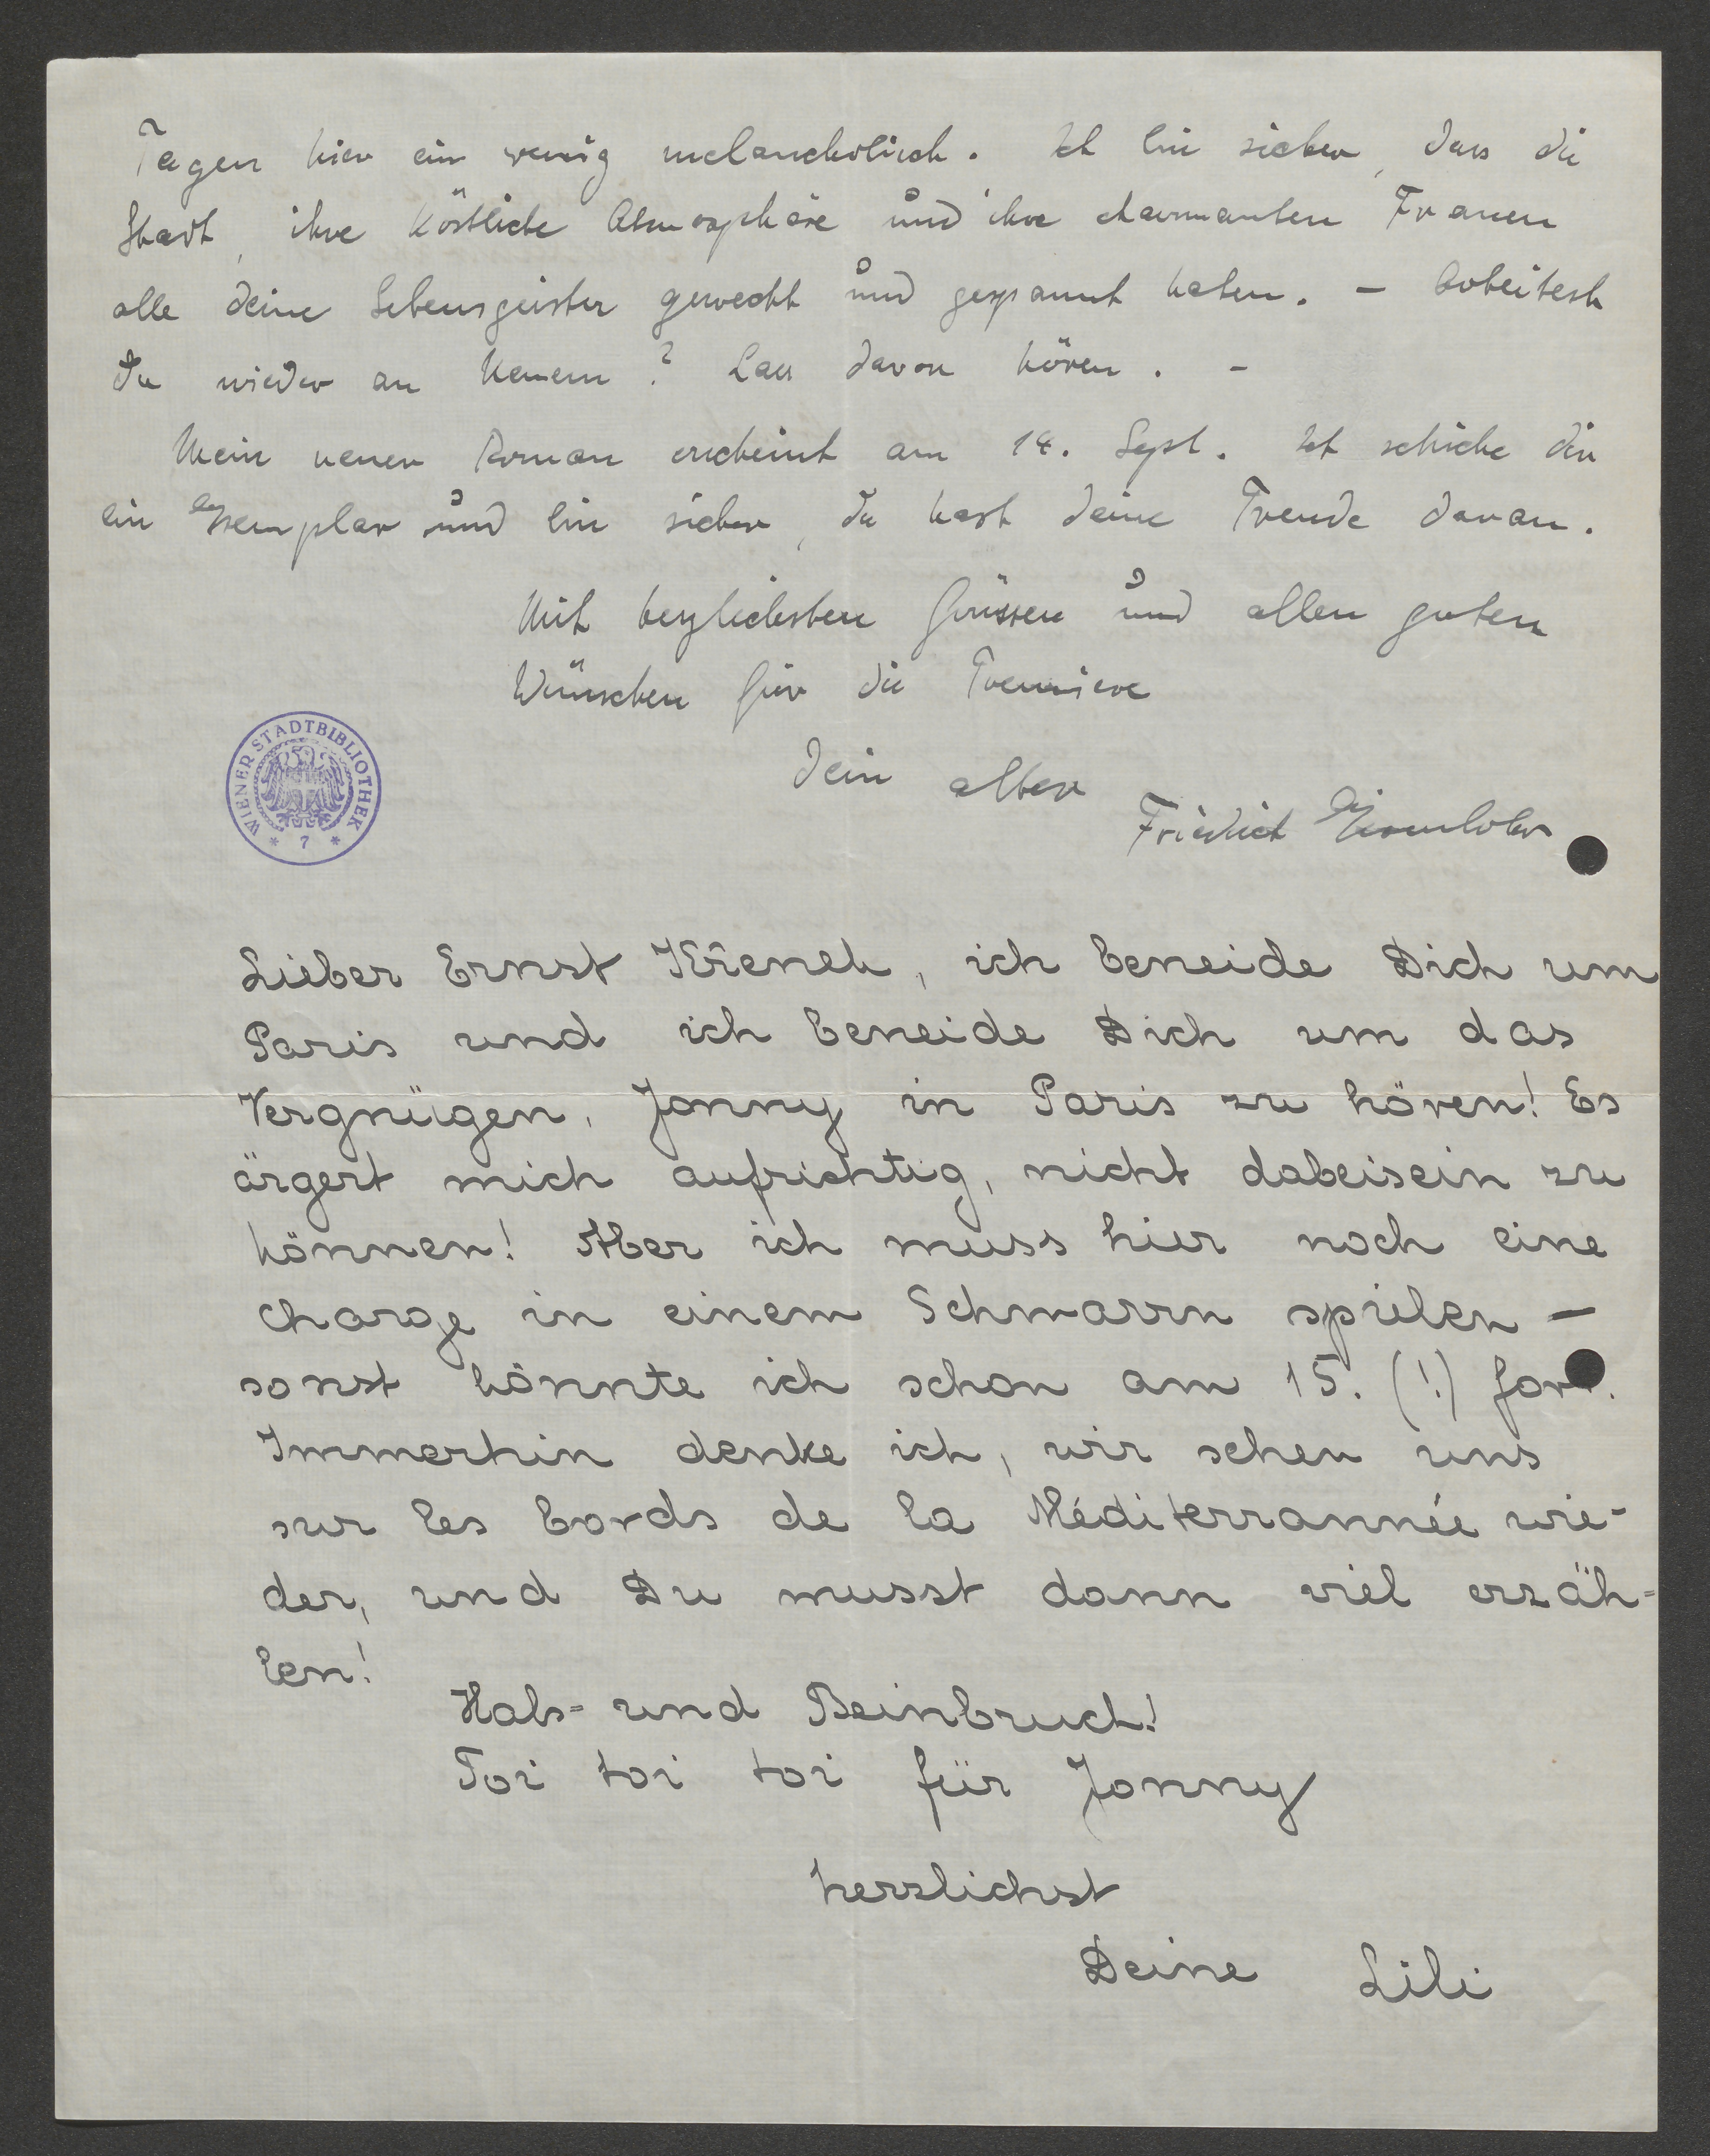 Tagen hier ein wenig melancholisch. Ich bin sicher, dass die
Stadt, ihre köstliche Atmosphäre und ihre charmanten Frauen
alle deine Lebensgeister geweckt und gespannt haben. – Arbeitest
du wieder an Neuem? Lass davon hören. –
Mein neuer Roman erscheint am 14. Sept. Ich schicke dir
ein Exemplar und bin sicher, du hast deine Freude daran.
Mit herzlichsten Grüssen und allen guten
Wünschen für die Premiere
dein alter
Friedrich Eisenlohr
WIENER STADTBIBLIOTHEK
* 7 *
Lieber Ernst Křenek, ich beneide Dich um
Paris und ich beneide Dich um das
Vergnügen, Jonny in Paris zu hören! Es
ärgert mich aufrichtig, nicht dabeisein zu
können! Aber ich muss hier noch eine
Charge in einem Schmarrn spielen –
sonst könnte ich schon am 15. (!) fort.
Immerhin denke ich, wir sehen uns
sur les bords de la Méditerrannée wie-
der, und Du musst dann viel erzäh=
len!
Hals= und Beinbruch!
Toi toi toi für Jonny
herzlichst
Deine Lili